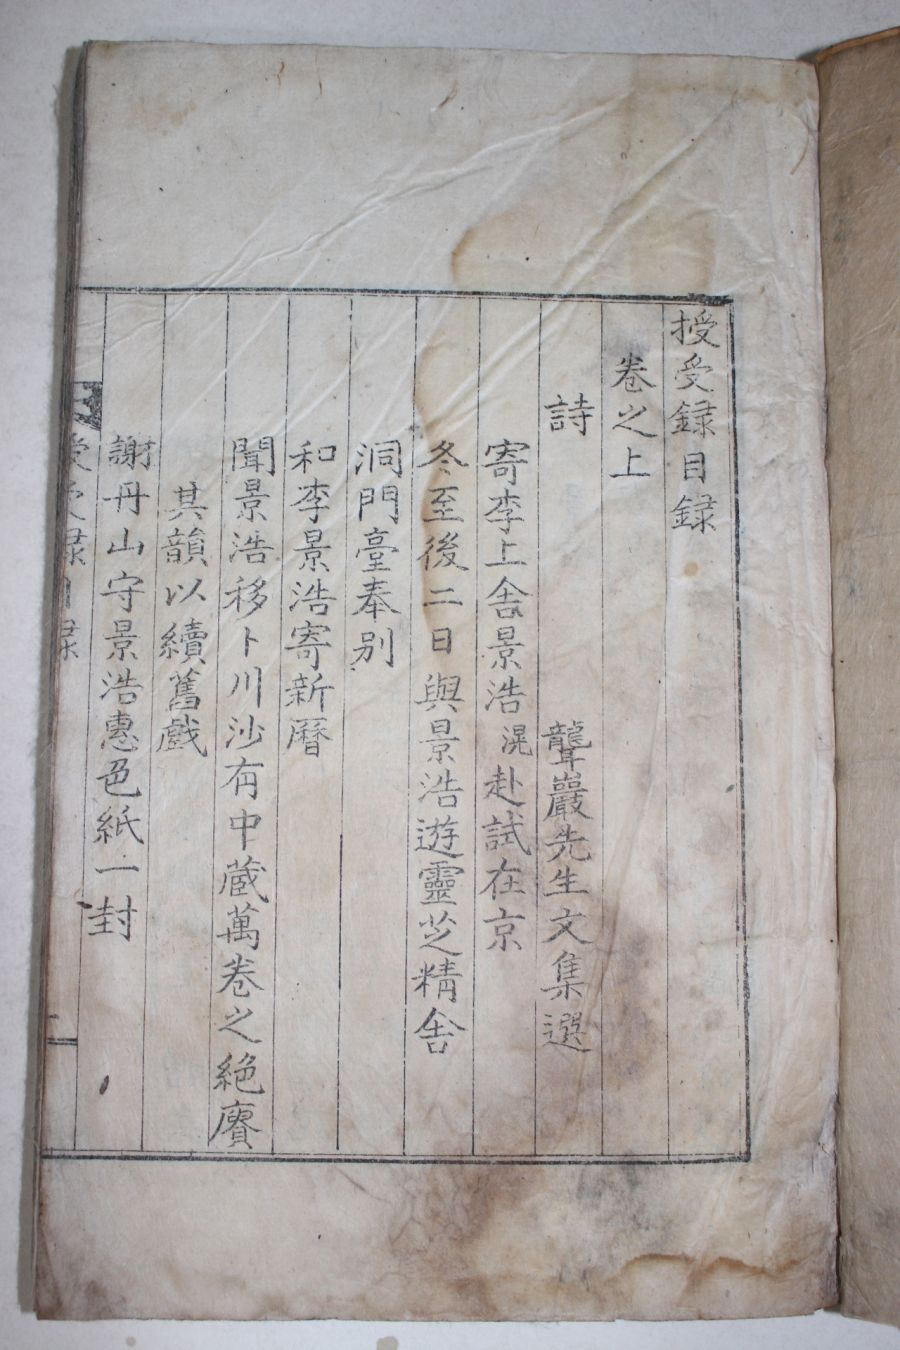 授受録目録
卷之上
詩 聾巖先生文集選
寄李上舍景浩滉赴試在京
冬至後二日與景浩遊靈芝精舍
洞門臺奉别
和李景浩寄新曆
聞景浩移卜川沙有中蔵萬卷之絶賡
其韻以續舊戲
謝丹山守景浩惠色紙一封